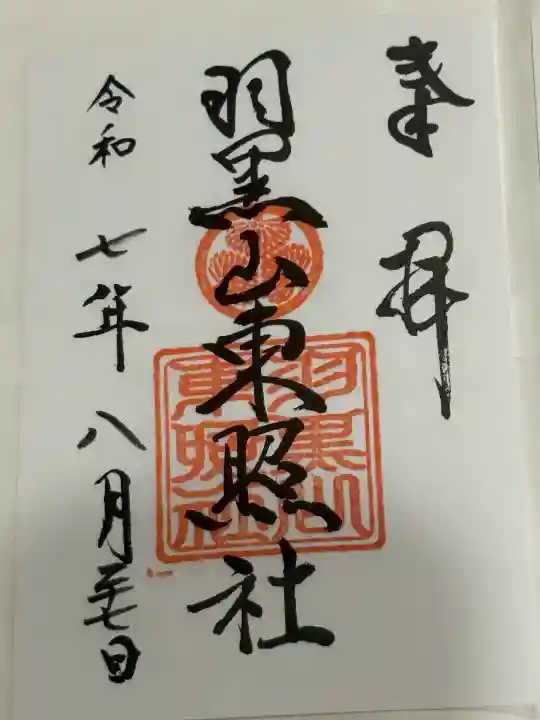 奉拝
羽黒山東照社
令和七年八月二十七日
羽黒山
東照社